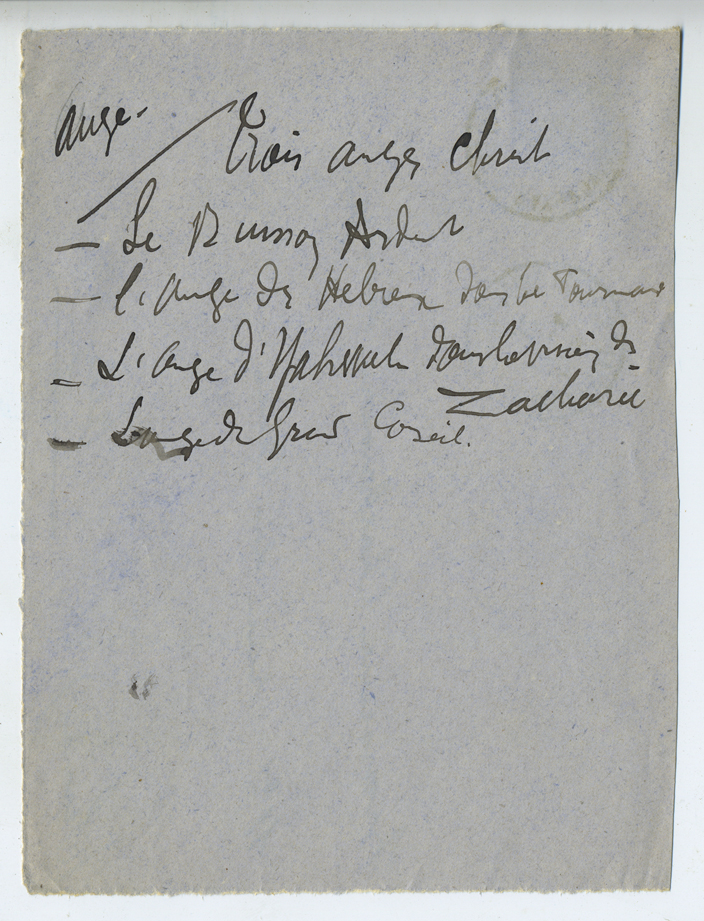 Ange.
Trois anges Christ
— Le Buisson Ardent
— l'Ange des Hébreux dans la Fournaise
— L'Ange d' dans la vision de
Zacharie
— L'ange du Grand Conseil.